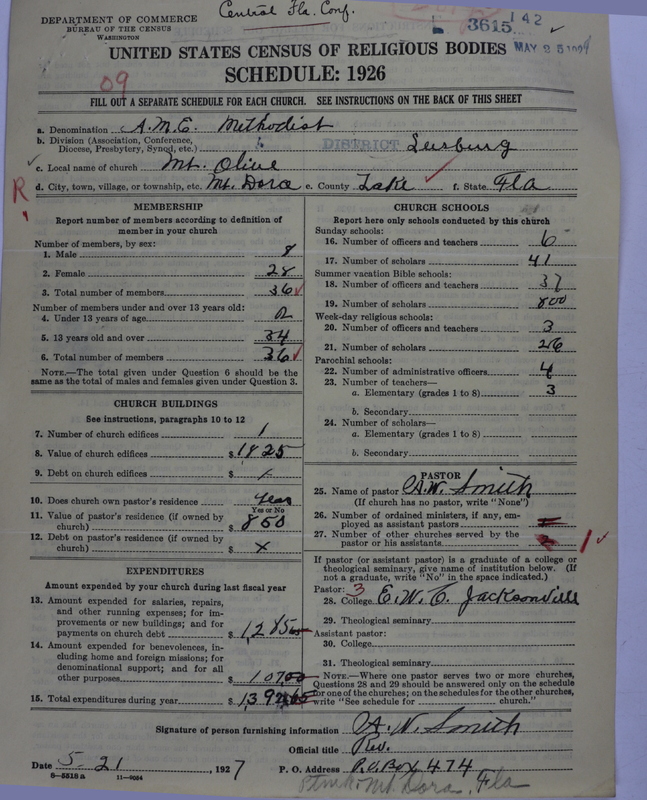 Central Fla. Conf.
DEPARTMENT OF COMMERCE
BUREAU OF THE CENSUS
WASHINGTON
L 3615 142
MAY 25 1927
UNITED STATES CENSUS OF RELIGIOUS BODIES
SCHEDULE: 1926
09
FILL OUT A SEPARATE SCHEDULE FOR EACH CHURCH. SEE INSTRUCTIONS ON THE BACK OF THIS SHEET
a. Denomination A.M.E. Methodist
b. Division (Association, Conference, Diocese, Presbytery, Synod, etc.) DISTRICT Leesburg
c. Local name of church Mt. Olive
R
d. City, town, village, or township, etc. Mt. Dora e. County Lake f. State Fla
MEMBERSHIP
Report number of members according to definition of
member in your church
Number of members, by sex:
1. Male 8
2. Female 28
3. Total number of members 36
Number of members under and over 13 years old:
4. Under 13 years of age 2
5. 13 years old and over 34
6. Total number of members 36
NOTE.—The total given under Question 6 should be the
same as the total of males and females given under Question 3.
CHURCH BUILDINGS
See instructions, paragraphs 10 to 12
7. Number of church edifices 1
8. Value of church edifices $ 1825
9. Debt on church edifices $
10. Does church own pastor's residence Yes
Yes or No
11. Value of pastor's residence (if owned by
church) $ 850
12. Debt on pastor's residence (if owned by
church) $ x
EXPENDITURES
Amount expended by your church during last fiscal year
13. Amount expended for salaries, repairs,
and other running expenses; for im-
provements or new buildings; and for
payments on church debt $ 1,285
14. Amount expended for benevolences, in-
cluding home and foreign missions; for
denominational support; and for all
other purposes $ 107.00
15. Total expenditures during year $ 1,392
CHURCH SCHOOLS
Report here only schools conducted by this church
Sunday schools:
16. Number of officers and teachers 6
17. Number of scholars 41
Summer vacation Bible schools:
18. Number of officers and teachers 37
19. Number of scholars 800
Week-day religious schools:
20. Number of officers and teachers 3
21. Number of scholars 256
Parochial schools:
22. Number of administrative officers 4
23. Number of teachers—
a. Elementary (grades 1 to 8) 3
b. Secondary
24. Number of scholars—
a. Elementary (grades 1 to 8)
b. Secondary
PASTOR
25. Name of pastor A.W. Smith
(If church has no pastor, write "None")
26. Number of ordained ministers, if any, em-
ployed as assistant pastors
27. Number of other churches served by the
pastor or his assistants 1
If pastor (or assistant pastor) is a graduate of a college or
theological seminary, give name of institution below. (If
not a graduate, write "No" in the space indicated.)
Pastor: 3
28. College E.W.C. Jacksonville
29. Theological seminary
Assistant pastor:
30. College
31. Theological seminary
NOTE.—Where one pastor serves two or more churches,
Questions 28 and 29 should be answered only on the schedule
for one of the churches; on the schedules for the other churches,
write "See schedule for church."
Signature of person furnishing information A. W. Smith
Official title Rev.
Date 5-21, 1927 P. O. Address P.O. Box 474
8-5518a 11-9034
Mt. Dora, Fla